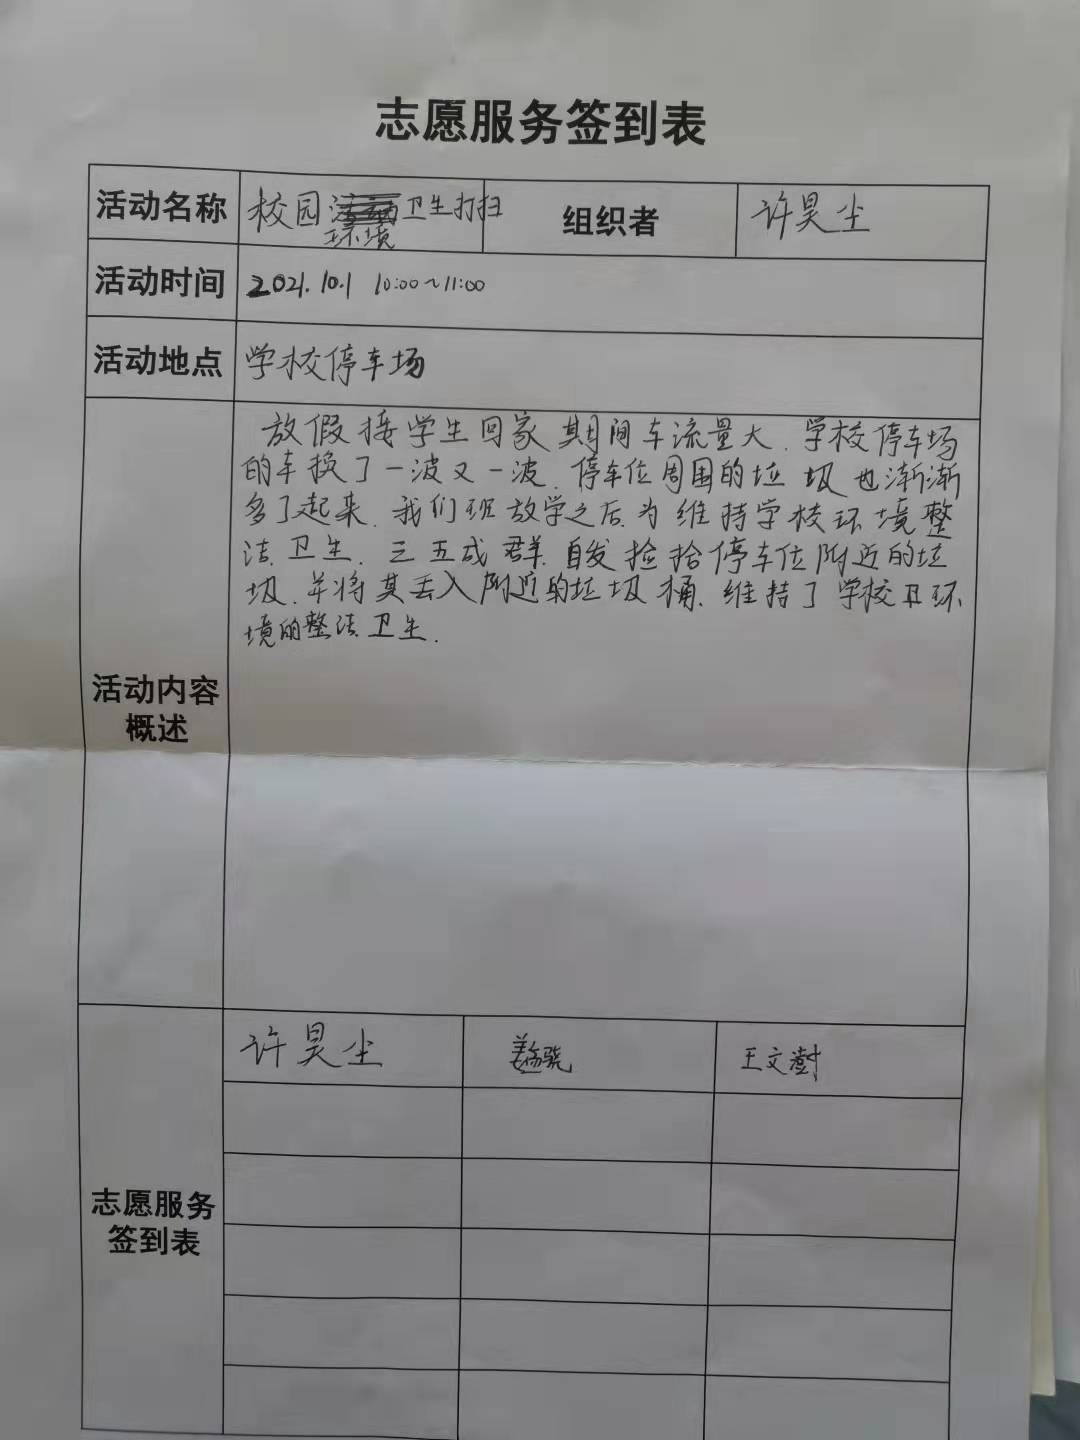 志愿服务签到表
活动名称 校园环境卫生打扫 组织者 许昊尘
活动时间 2021.10.1 10:00~11:00
活动地点 学校停车场
放假接学生回家期间车流量大,学校停车场
的车换了一波又一波,停车位周围的垃圾也渐渐
多了起来,我们班放学之后,为维持学校环境整
洁卫生,三五成群,自发捡拾停车位附近的垃
圾,并将其丢入附近的垃圾桶,维持了学校卫环
境的整洁卫生.
活动内容
概述
许昊尘 王文澍
志愿服务
签到表